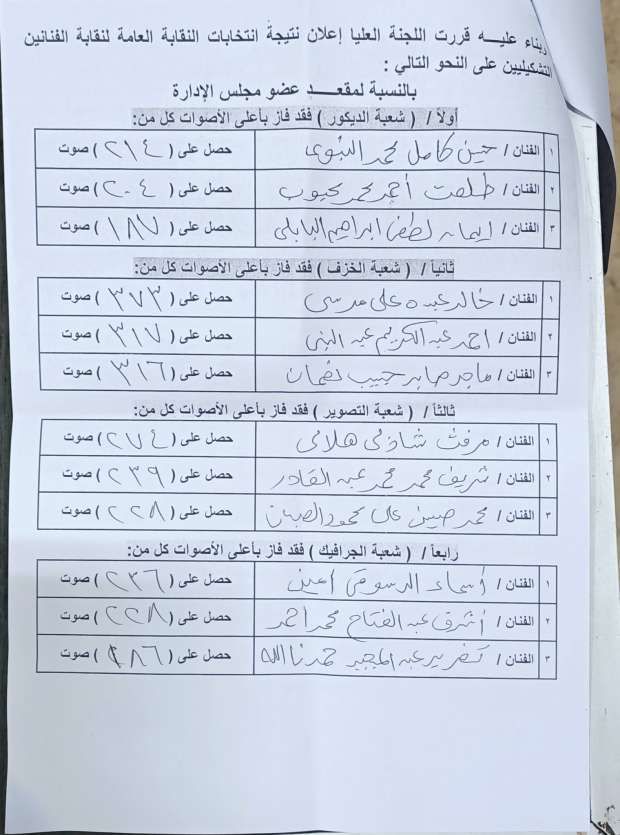 وبناء عليـــه قررت اللجنة العليا إعلان نتيجة انتخابات النقابة العامة لنقابة الفنانين
التشكيليين على النحو التالي :
بالنسبة لمقعــد عضو مجلس الإدارة
أولاً / ( شعبة الديكور ) فقد فاز بأعلى الأصوات كل من:
١ الفنان / حسن كامل محمد النبوى حصل على ( ٢١٤ ) صوت
٢ الفنان / طلعت أحمد محمد حصل على ( ٢٠٤ ) صوت
٣ الفنان / إيمان لطفى ابراهيم البابلى حصل على ( ١٨٧ ) صوت
ثانياً / ( شعبة الخزف ) فقد فاز بأعلى الأصوات كل من:
١ الفنان / خالد عبده على مرسى حصل على ( ٣٧٣ ) صوت
٢ الفنان / احمد عبد الكريم عبد النبى حصل على ( ٣١٧ ) صوت
٣ الفنان / ماجد صابر حبيب حصل على ( ٣١٦ ) صوت
ثالثاً / ( شعبة التصوير ) فقد فاز بأعلى الأصوات كل من:
١ الفنان / مرفت شاذلى هلالى حصل على ( ٢٧٤ ) صوت
٢ الفنان / شريف محمد محمد عبد القادر حصل على ( ٢٣٩ ) صوت
٣ الفنان / محمد حسين على محمود الصبان حصل على ( ٢٢٨ ) صوت
رابعاً / ( شعبة الجرافيك ) فقد فاز بأعلى الأصوات كل من:
١ الفنان / أسماء الدسوقى أمين حصل على ( ٢٣٦ ) صوت
٢ الفنان / أشرف عبد الفتاح محمد احمد حصل على ( ٢٢٨ ) صوت
٣ الفنان / عبد المجيد حمد نا الله حصل على ( ١٨٦ ) صوت